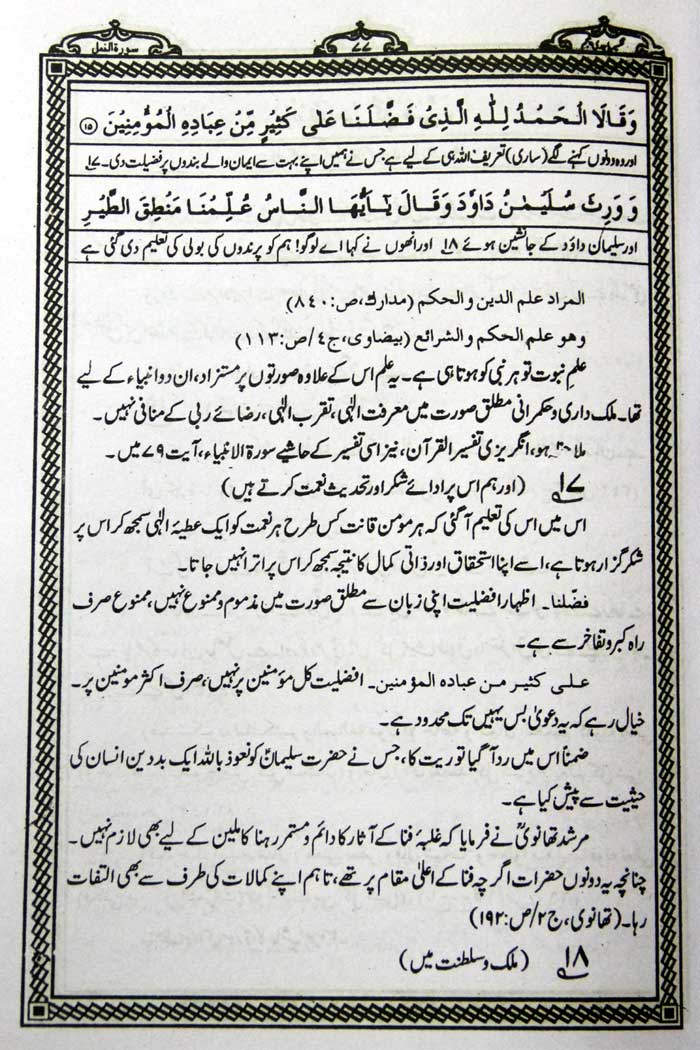 سورة النمل
۷۷
وَقَالَا الْحَمْدُ لِلّٰهِ الَّذِیْ فَضَّلَنَا عَلٰی كَثِیْرٍ مِّنْ عِبَادِهِ الْمُؤْمِنِیْنَ ۝۱۵
اور وہ دونوں کہنے لگے (ساری) تعریف اللہ ہی کے لیے ہے جس نے ہمیں اپنے بہت سے ایمان والے بندوں پر فضیلت دی۔ ۱۷
وَ وَرِثَ سُلَیْمٰنُ دَاوٗدَ وَقَالَ یٰۤاَیُّهَا النَّاسُ عُلِّمْنَا مَنْطِقَ الطَّیْرِ
اور سلیمان داؤد کے جانشین ہوئے ۱۸ اور انھوں نے کہا اے لوگو! ہم کو پرندوں کی بولی کی تعلیم دی گئی ہے
المراد علم الدین والحکم (مدارک، ص: ۸۴۰)
وھو علم الحکم والشرائع (بیضاوی، ج۴/ص: ۱۱۳)
علمِ نبوت تو ہر نبی کو ہوتا ہی ہے۔ یہ علم اس کے علاوہ صورتوں پر مستزاد، ان دو انبیاء کے لیے
تھا۔ ملک داری و حکمرانی مطلق صورت میں معرفت الٰہی، تقرب الٰہی، رضائے ربی کے منافی نہیں۔
ہو، انگریزی تفسیر القرآن، نیز اسی تفسیر کے حاشیے سورۃ الانبیاء، آیت ۷۹ میں۔
۱۷ (اور ہم اس پر ادائے شکر اور تحدیث نعمت کرتے ہیں)
اس میں اس کی تعلیم آ گئی کہ ہر مومن قانت کس طرح ہر نعمت کو ایک عطیۂ الٰہی سمجھ کر اس پر
شکر گزار ہوتا ہے، اسے اپنا استحقاق اور ذاتی کمال کا نتیجہ سمجھ کر اس پر اترا نہیں جاتا۔
فضلنا۔ اظہار افضلیت اپنی زبان سے مطلق صورت میں مذموم و ممنوع نہیں، ممنوع صرف
راہ کبر و تفاخر سے ہے۔
علی کثیر من عبادہ المؤمنین۔ افضلیت کل مؤمنین پر نہیں، صرف اکثر مومنین پر۔
خیال رہے کہ یہ دعویٰ بس یہیں تک محدود ہے۔
ضمناً اس میں رد آ گیا توریت کا، جس نے حضرت سلیمانؑ کو نعوذ باللہ ایک بد دین انسان کی
حیثیت سے پیش کیا ہے۔
مرشد تھانویؒ نے فرمایا کہ غلبۂ فنا کے آثار کا دائم و مستمر رہنا کاملین کے لیے بھی لازم نہیں۔
چنانچہ یہ دونوں حضرات اگرچہ فنا کے اعلیٰ مقام پر تھے، تاہم اپنے کمالات کی طرف سے بھی التفات
رہا۔ (تھانوی، ج۲/ص: ۱۹۲)
۱۸ (ملک و سلطنت میں)